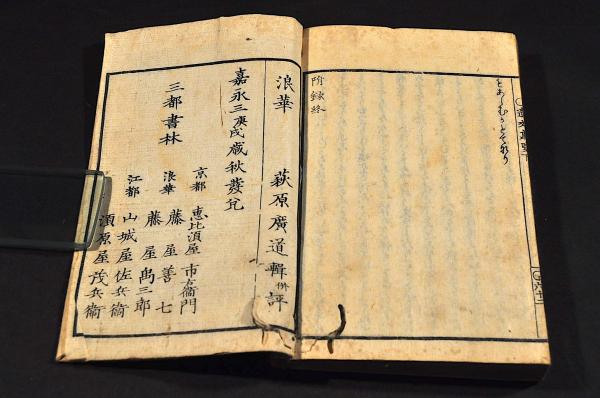 をあしむかとそ有り
附録終
浪華 萩原廣道輯併評
嘉永三庚戌歳秋發兌
三都書林
京都 恵比須屋市右衛門
浪華 藤屋善七
藤屋禹三郎
江都 山城屋佐兵衛
須原屋茂兵衛